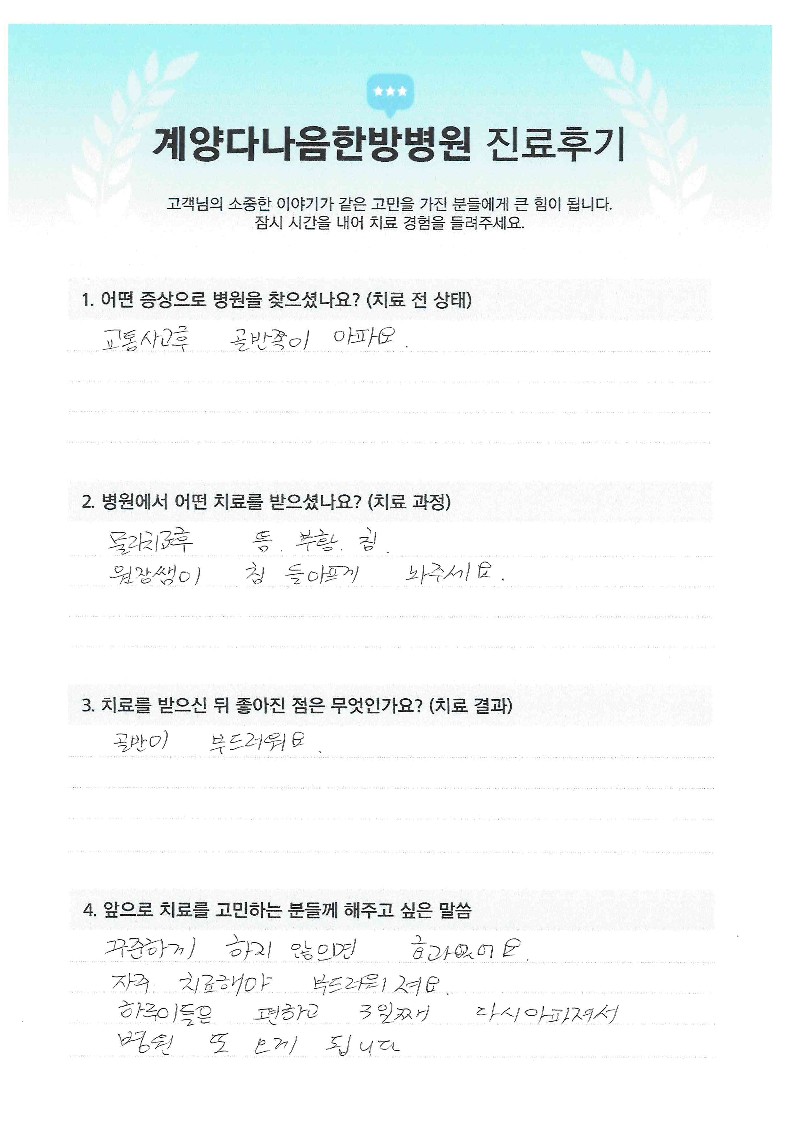 계양다나음한방병원 진료후기
고객님의 소중한 이야기가 같은 고민을 가진 분들에게 큰 힘이 됩니다.
잠시 시간을 내어 치료 경험을 들려주세요.
1. 어떤 증상으로 병원을 찾으셨나요? (치료 전 상태)
교통사고후 골반쪽이 아파요.
2. 병원에서 어떤 치료를 받으셨나요? (치료 과정)
물리치료후 뜸. 부황. 침.
원장쌤이 침 들아프게 놔주세요.
3. 치료를 받으신 뒤 좋아진 점은 무엇인가요? (치료 결과)
골반이 부드러워요.
4. 앞으로 치료를 고민하는 분들께 해주고 싶은 말씀
꾸준하게 하지 않으면 효과없어요.
자주 치료해야 부드러워져요.
하루이틀은 편하고 3일째 다시아파져서
병원 또 오게 됩니다